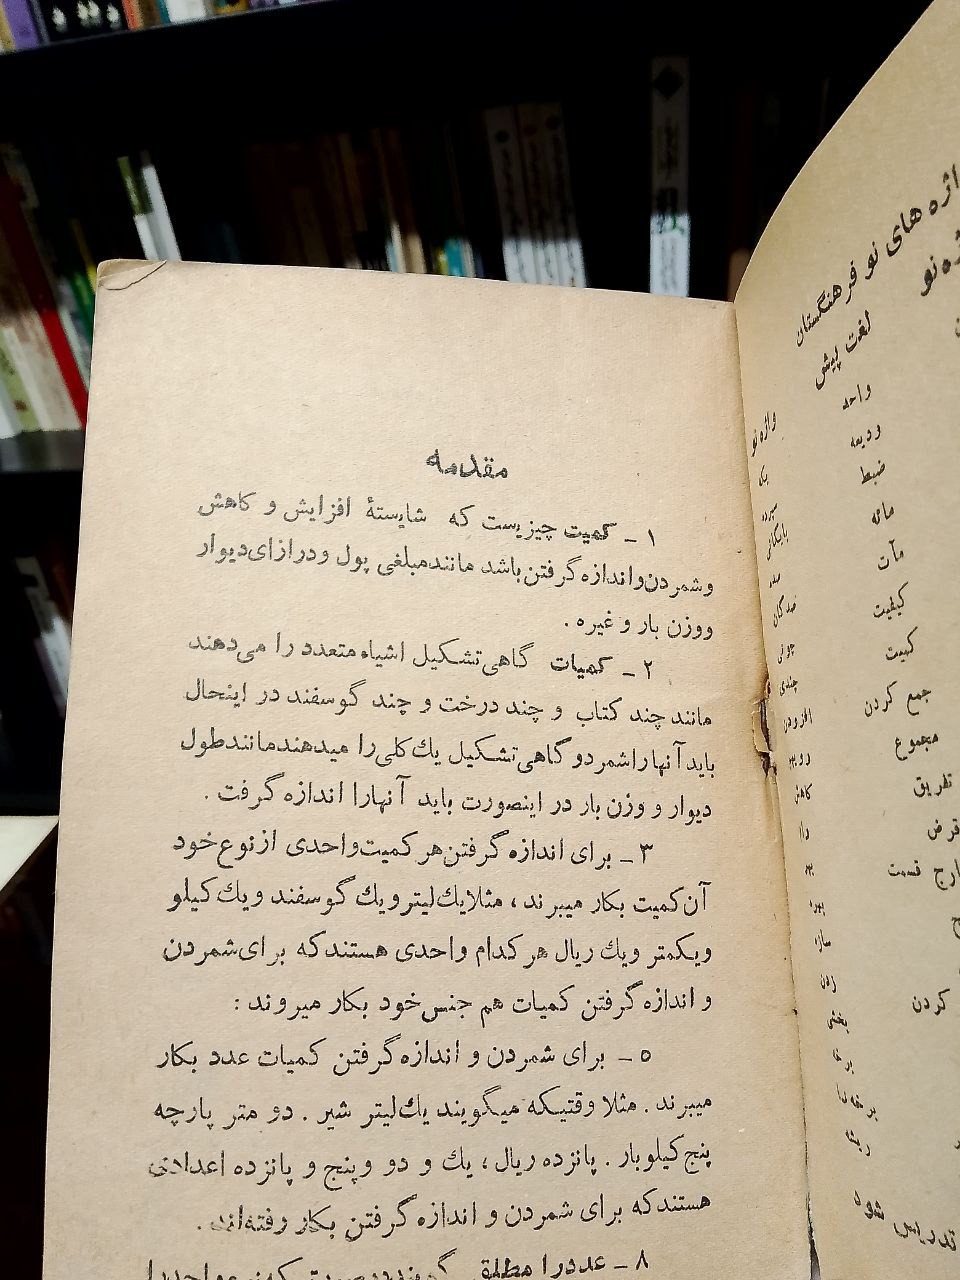 مقدمه
۱ ـ کمیت چیزیست که شایستهٔ افزایش و کاهش
وشمردن‌واندازه‌گرفتن‌باشد مانندمبلغی پول ودرازای‌دیوار
ووزن بار و غیره .
۲ ـ کمیات گاهی‌تشکیل اشیاء متعدد را می‌دهند
مانند چند کتاب و چند درخت و چند گوسفند در اینحال
باید آنهاراشمرد و گاهی‌تشکیل یك‌کلی‌را میدهندمانندطول
دیوار و وزن بار در اینصورت باید آنهارا اندازه گرفت .
۳ ـ برای اندازه گرفتن‌هر کمیت‌واحدی ازنوع‌خود
آن‌کمیت بکار میبرند ، مثلایك‌لیترویك گوسفند ویك‌کیلو
ویکمتر ویك ریال هر کدام واحدی هستندکه برای‌شمردن
و اندازه گرفتن کمیات هم جنس خود بکار میروند :
۵ ـ برای شمردن و اندازه گرفتن کمیات عدد بکار
میبرند . مثلا وقتیکه میگویند یك‌لیتر شیر . دو متر پارچه
پنج‌کیلوبار . پانزده ریال ، یك و دو وپنج و پانزده اعدادی
هستندکه برای شمردن و اندازه گرفتن بکار رفته‌اند .
۸ ـ عددرا مطلق
اژه های نو فرهنگستان
ژه‌نو
لغت پیش
واژه نو
واحد
یك
ودیعه
سپرده
ضبط
بایگانی
مائه
سده
مآت
صدگان
کیفیت
چونی
کمیت
چندی
جمع کردن
افزودن
مجموع
تفریق
کاهش
قرض
وام
ارج قسمت
بهر
بهره
سازه
زدن
کردن
بخشی
برخه
ریشه
تدریس شود